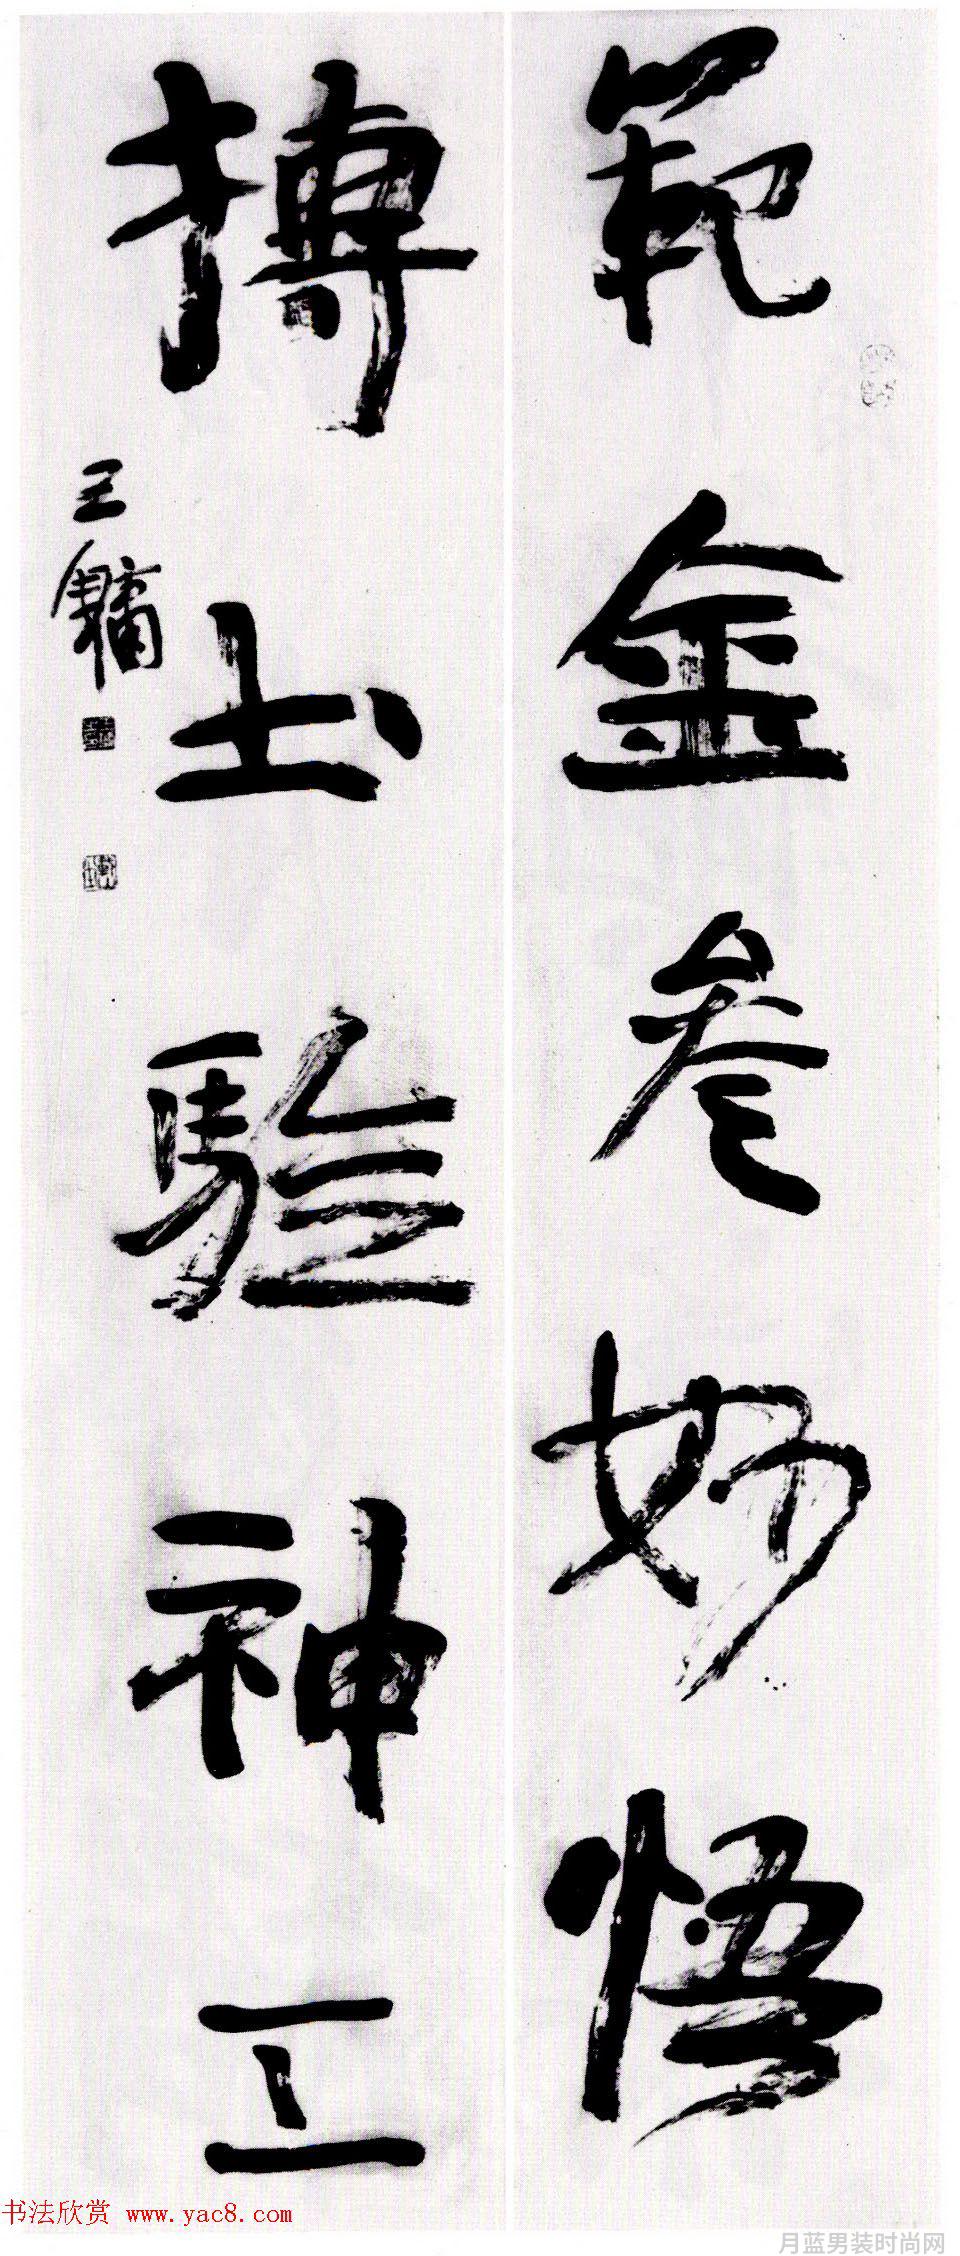 範金參妙悟
摶土驗神工
王鏞
书法欣赏 www.yac8.com
月蓝男装时尚网